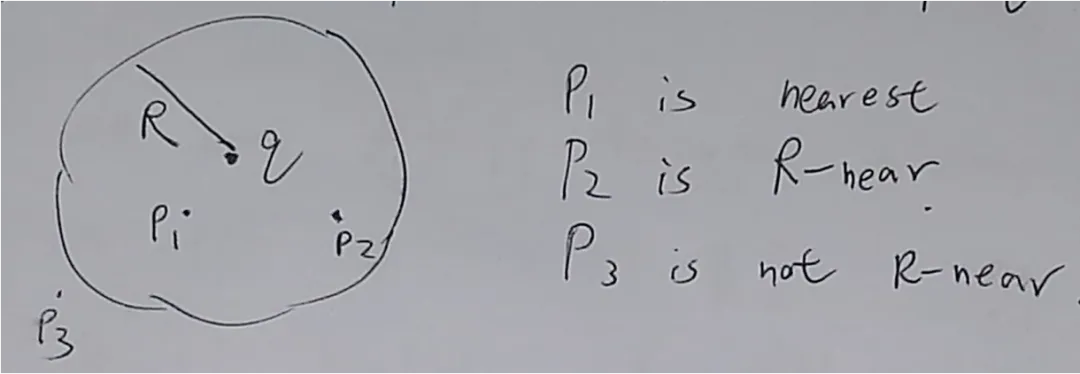 R
q
P1
P2
P3
P1 is nearest
P2 is R-near
P3 is not R-near.